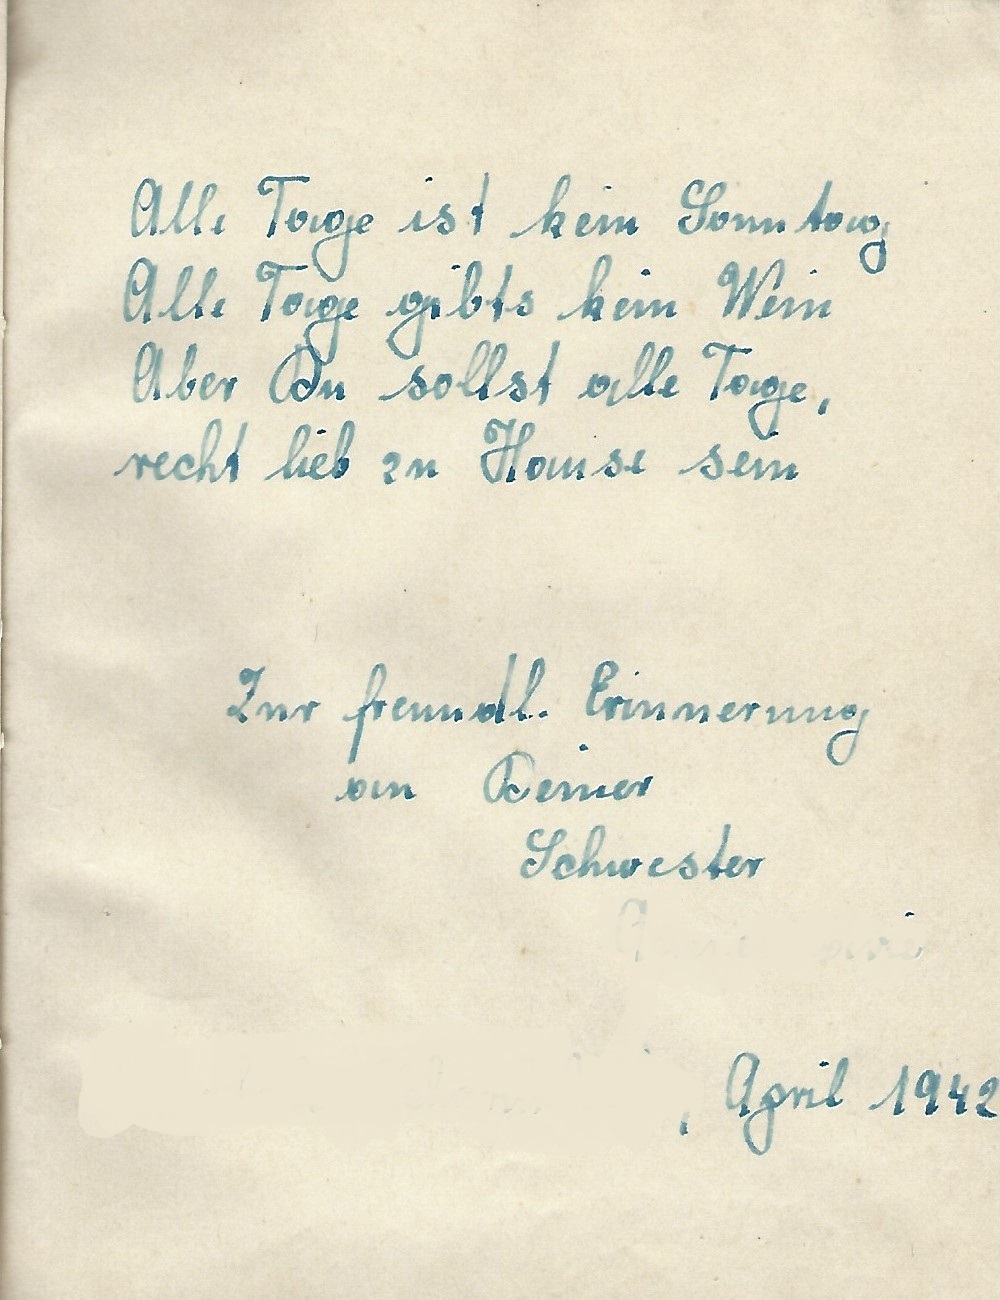 Alle Tage ist kein Sonntag
Alle Tage gibts kein Wein
Aber Du sollst alle Tage,
recht lieb zu Hause sein
Zur freundl. Erinnerung
an Deiner
Schwester
, April 1942